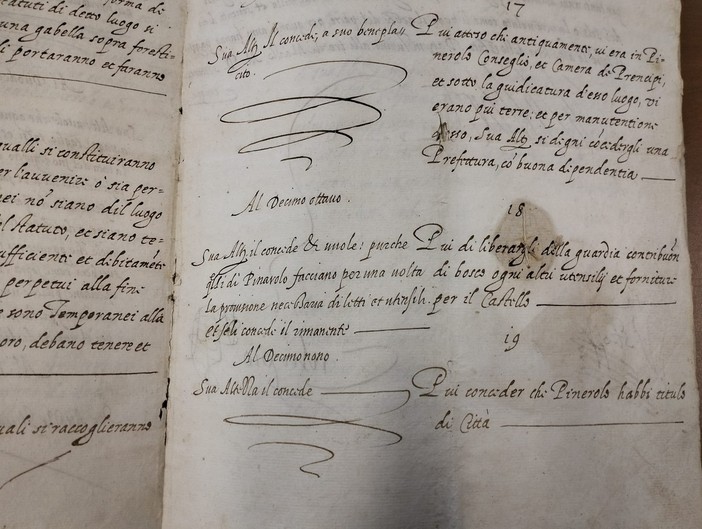 forma di
statuti di detto luogo si
una gabella sopra foresti=
li portaranno et faranno
qualli si constituiranno
per l'auuenire ò sia per=
nei nõ siano dil luogo
al statuto, et siano te=
sufficienti et debitamẽte
perpetui alla fine
e sono Temporanei alla
loro, debano tenere et
quali si raccoglieranno
17
Sua Altz Il concede, a suo beneplau
cito.
Piu atteso che antiquamente, vi era in Pi=
nerolo Conseglio, et Camera de Prencipi,
et sotto la giudicatura d'esso luogo, vi
erano piu terre; et per manutentione
d'esso, Sua Altz si degni cõcedergli una
Prefettura, cõ buona dependentia
Al Decimo ottauo.
18
Sua Altz il concede & uuole: purche
qlli di Pinarolo facciano per una uolta
la prouisione necessaria di letti et utinsili.
et seli concede il rimanente
Piu di liberargli della guardia contribuõn
di bosco ogni altri utensilij et forniture
per il Castello
Al Decimonono.
19
Sua Altezza il concede
Piu conceder che Pinerolo habbi titulo
di Città